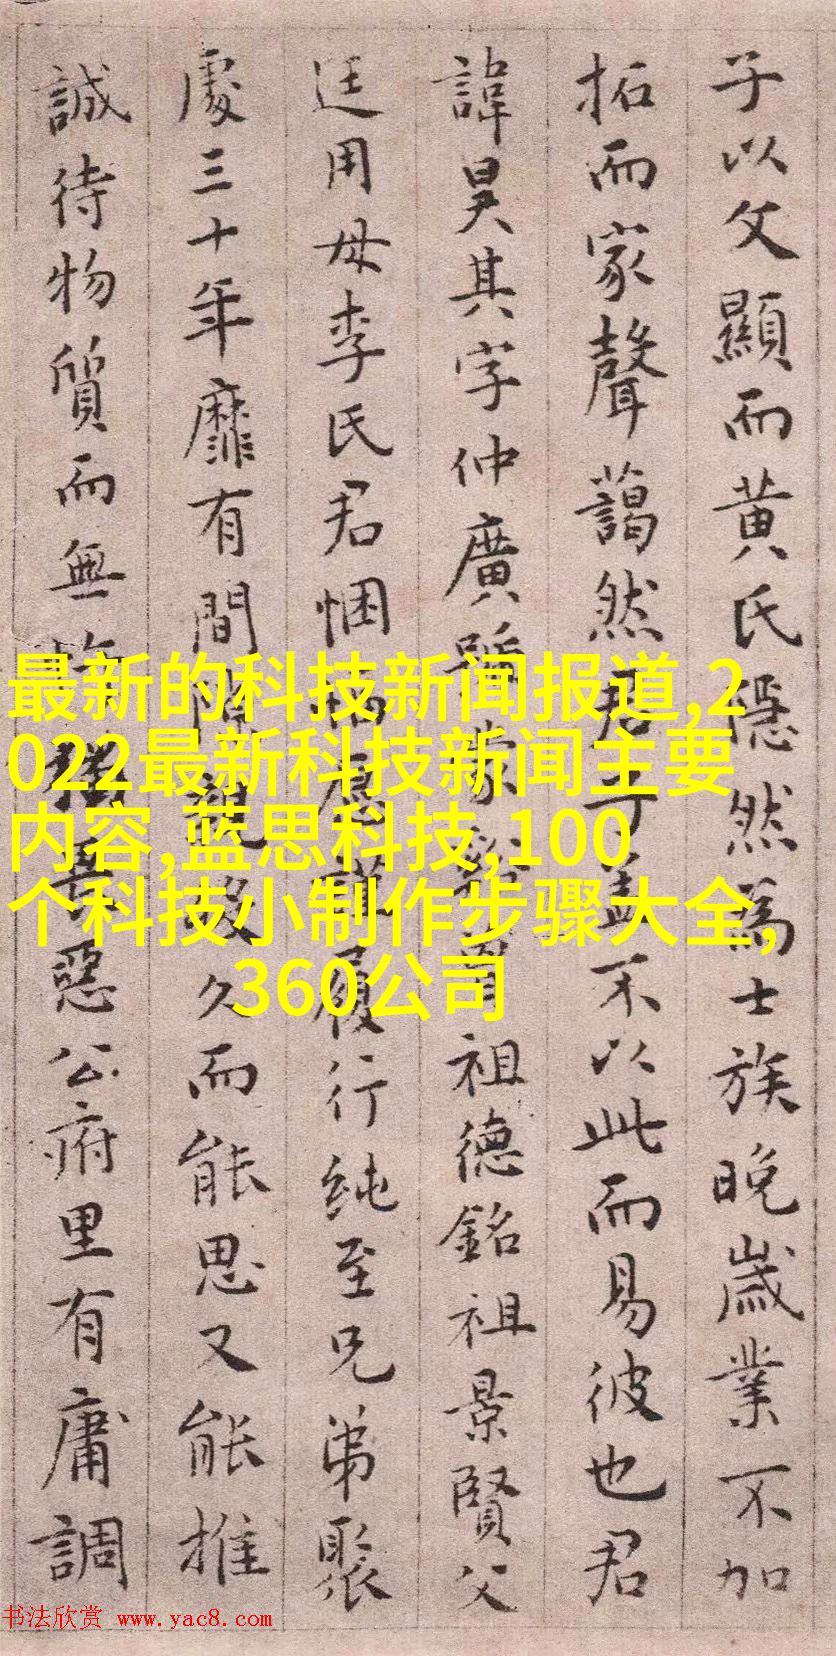 子以父顯而黃氏隱然為士族晚歲業不加
拓而家聲藹然君子蓋不以此而易彼也君
諱昊其字仲廣號蒙祖德銘祖景賢父
廷用母李氏君悃愊應謹履行純至兄弟聚
處三十年靡有間隙親歿久而能思又能推
誠待物質而無惡公府里有庸調
最新的科技新闻报道,2
022最新科技新闻主要
内容,蓝思科技,100
个科技小制作步骤大全,
360公司
书法欣赏 www.yac8.com